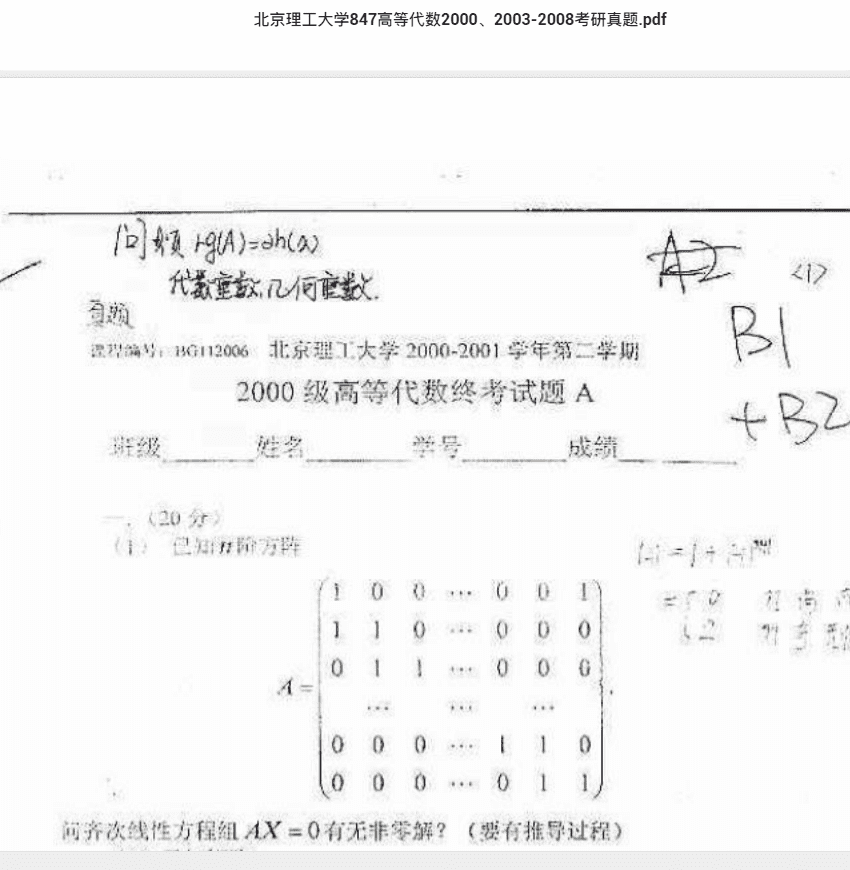 北京理工大学847高等代数2000、2003-2008考研真题.pdf
代数重数,几何重数.
真题
A2
<1>
B1
+B2
课程编号:BG112006 北京理工大学 2000-2001 学年第二学期
2000 级高等代数终考试题 A
班级 姓名 学号 成绩
一.(20 分)
(1) 已知n阶方阵
A = 
1 0 0 ⋯ 0 0 1
1 1 0 ⋯ 0 0 0
0 1 1 ⋯ 0 0 0
⋯ ⋯ ⋯
0 0 0 ⋯ 1 1 0
0 0 0 ⋯ 0 1 1
.
问齐次线性方程组 AX = 0 有无非零解?(要有推导过程)